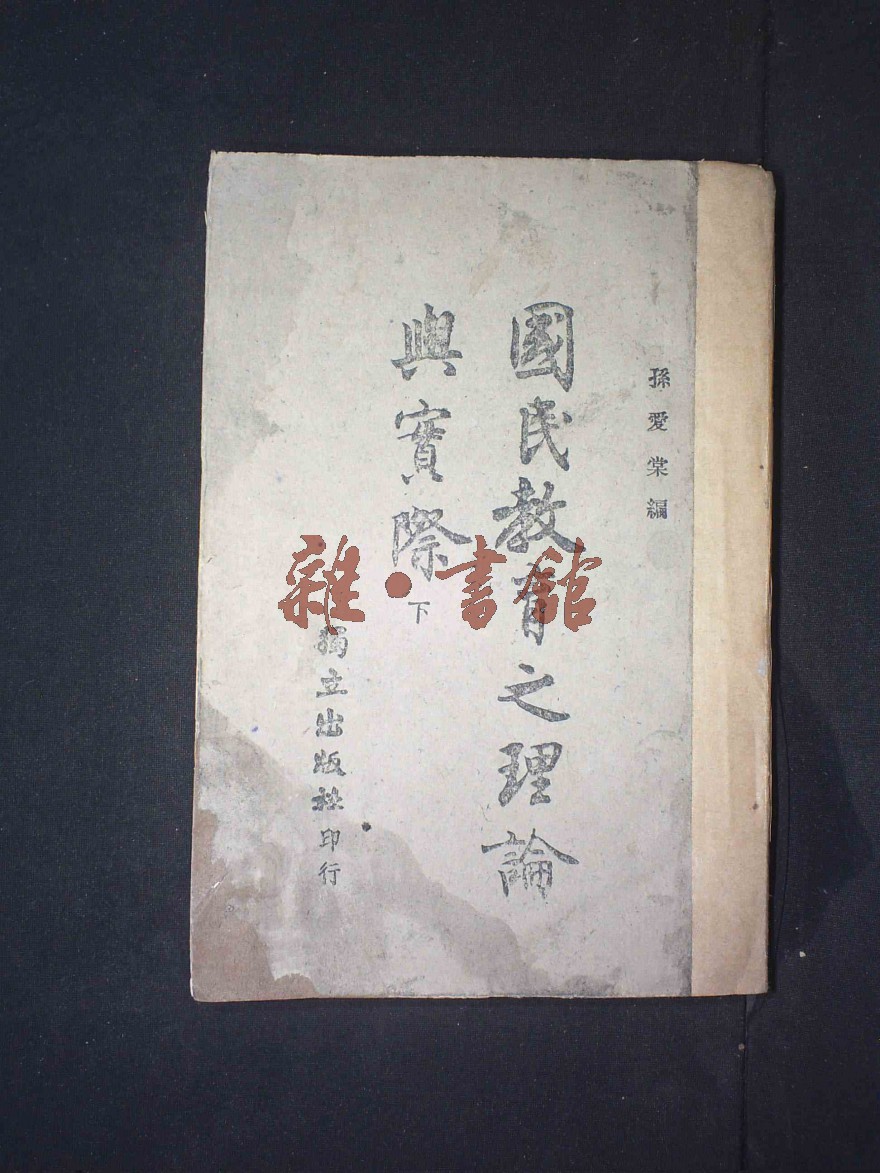 孫愛棠編
國民教育之理論
與實際
下
獨立出版社印行
雜·書館